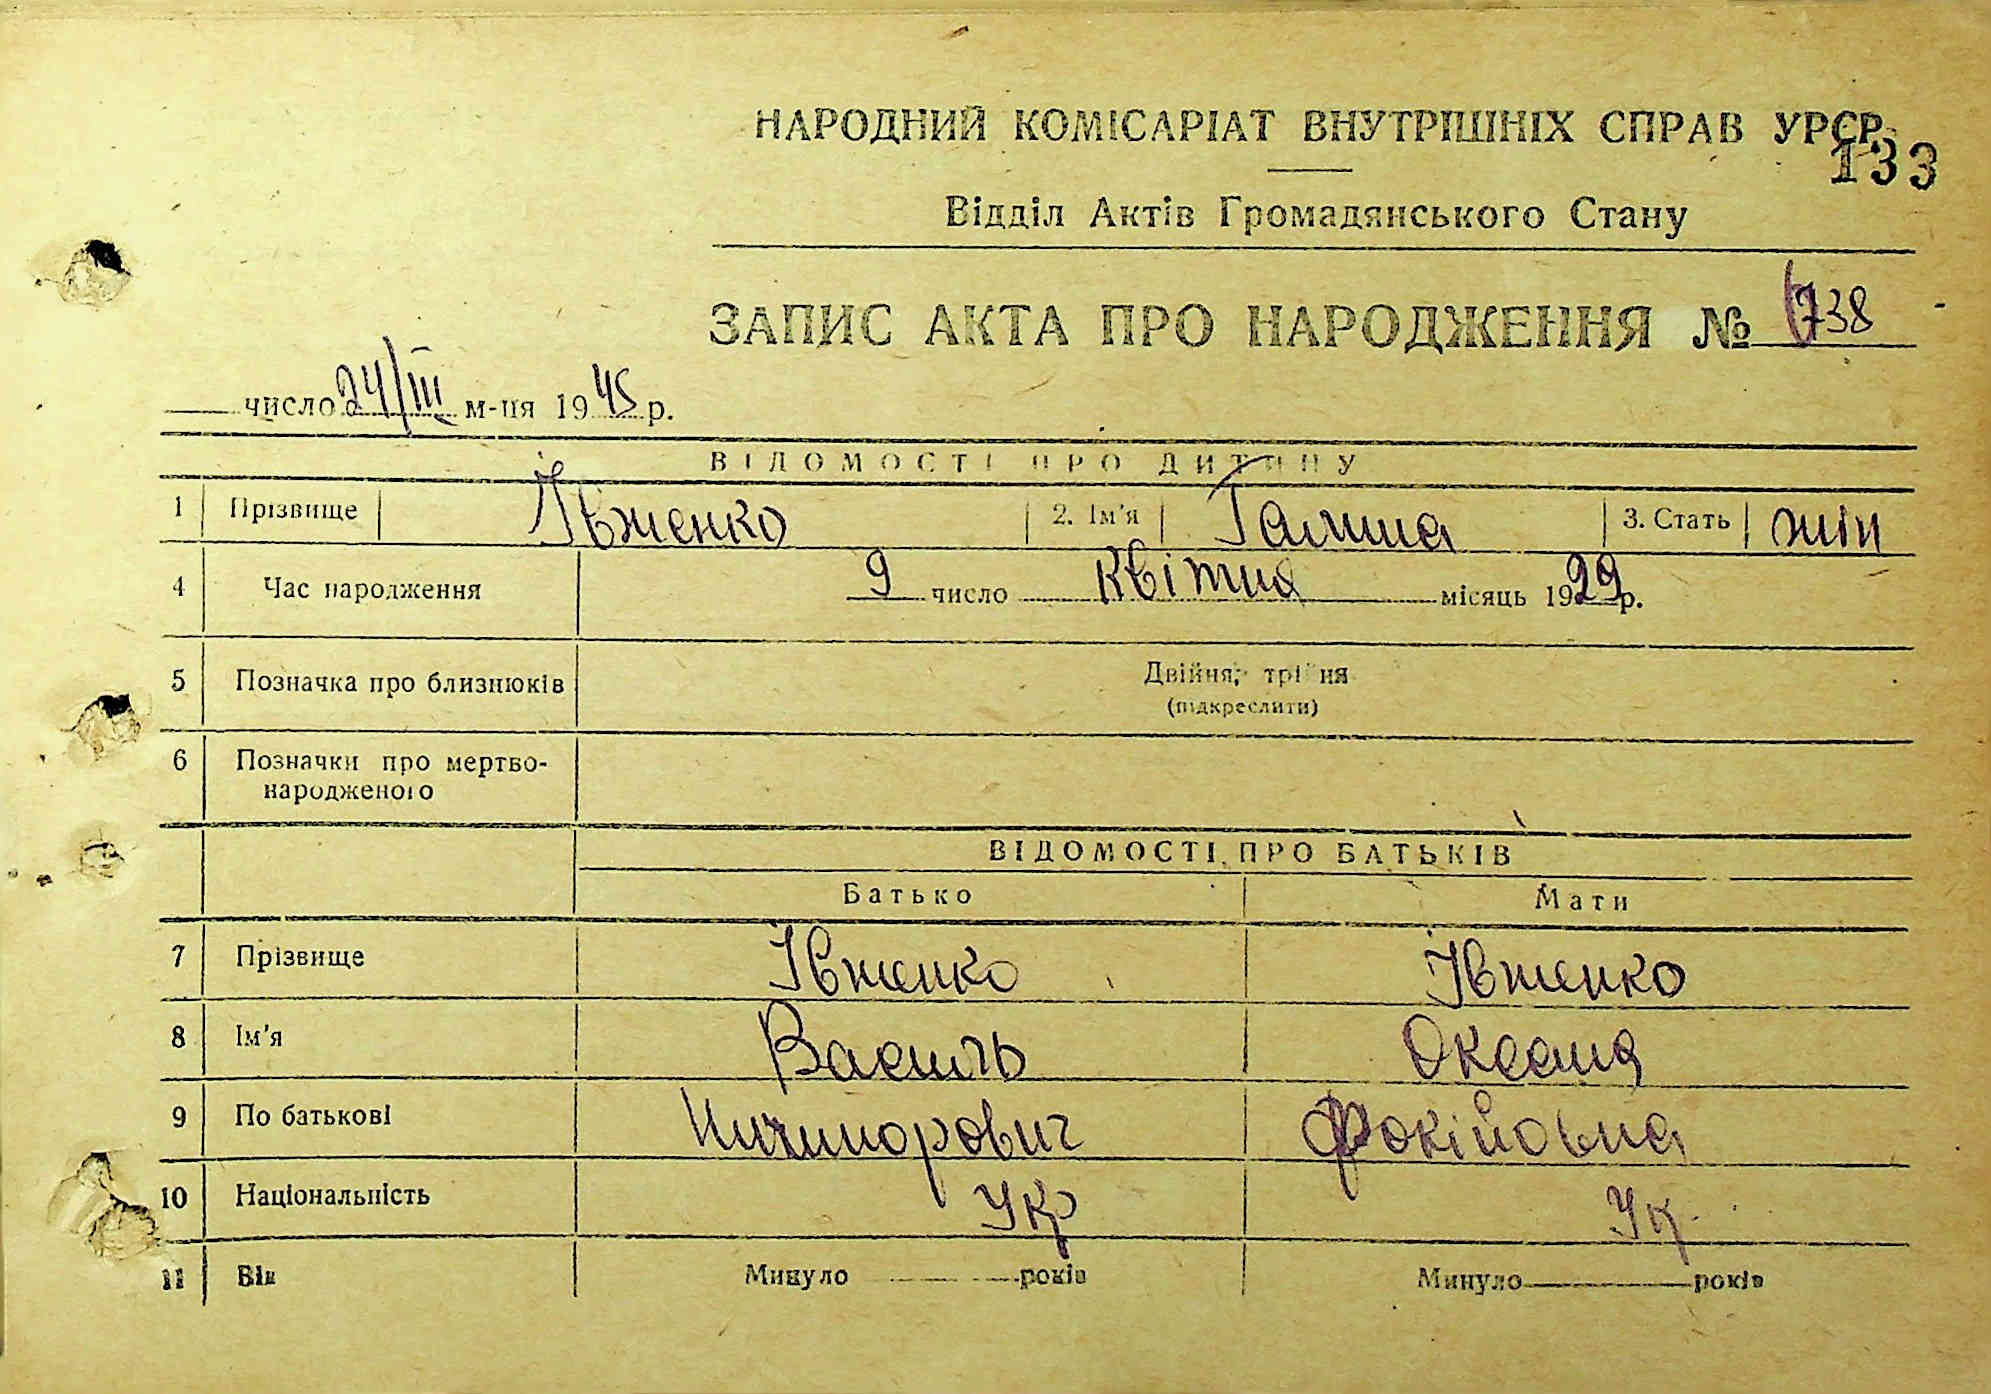 НАРОДНИЙ КОМІСАРІАТ ВНУТРІШНІХ СПРАВ УРСР
133
Відділ Актів Громадянського Стану
ЗАПИС АКТА ПРО НАРОДЖЕННЯ № 738
число 24/III м-ця 1945 р.
ВІДОМОСТІ ПРО ДИТИНУ
1 Прізвище Івженко 2. Ім'я Галина 3. Стать жін
4 Час народження 9 число квітня місяць 1929 р.
5 Позначка про близнюків Двійня, трійня
(підкреслити)
6 Позначки про мертво-
народженого
ВІДОМОСТІ ПРО БАТЬКІВ
Батько Мати
7 Прізвище Івженко Івженко
8 Ім'я Василь Оксана
9 По батькові Ничипорович Фокіївна
10 Національність Укр Ук
11 Вік Минуло років Минуло років